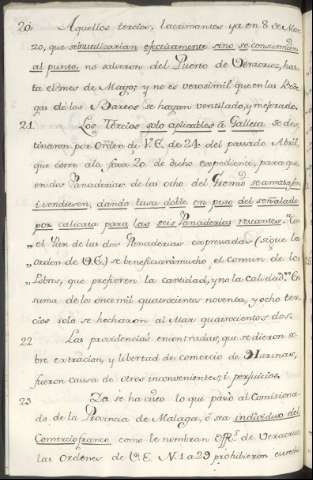 20. Aquellos tercios, lacrimantes ya en 8 de Mar-
zo, que se inutilizarian efectivamente sino se consumian
al punto, no salieron del Puerto de Veracruz, has-
ta el mes de Mayo; y no es verosimil que en las Bode-
gas de los Barcos se hayan ventilado, y mejorado.
21. Los Tercios solo aplicables à Galleta se des-
tinaron por orden de V.E. de 24 del pasado Abril,
que corre ala foxa 20 de dicho expediente, para que
en dos Panaderias de las ocho del Gremio se amasasen
i vendiesen, dando tasa doble en peso del señalado
por calicata para las seis Panaderias restantes. "Co
"el Pan de las dos Panaderias expresadas (sigue la
"orden de V.E.) se beneficiará mucho, el comun de los
"Pobres, que prefieren la cantidad, y no la calidad." En
suma de los once mil quatrocientos noventa, y ocho ter-
cios solo se hecharon al Mar quatrocientos dos.
22 Las providencias encontradas, que se dieron so-
bre extraccion, y libertad de comercio de Harinas,
fueron causa de otros inconvenientes, i perjuicios.
23 Ya se ha visto lo que pasó al Comisiona-
do de la Provincia de Malaga, ó sea individuo del
Comercio franco, como le nombran Ofs. de Veracruz
las Ordenes de V.E. N. 1 a 29 prohibieron